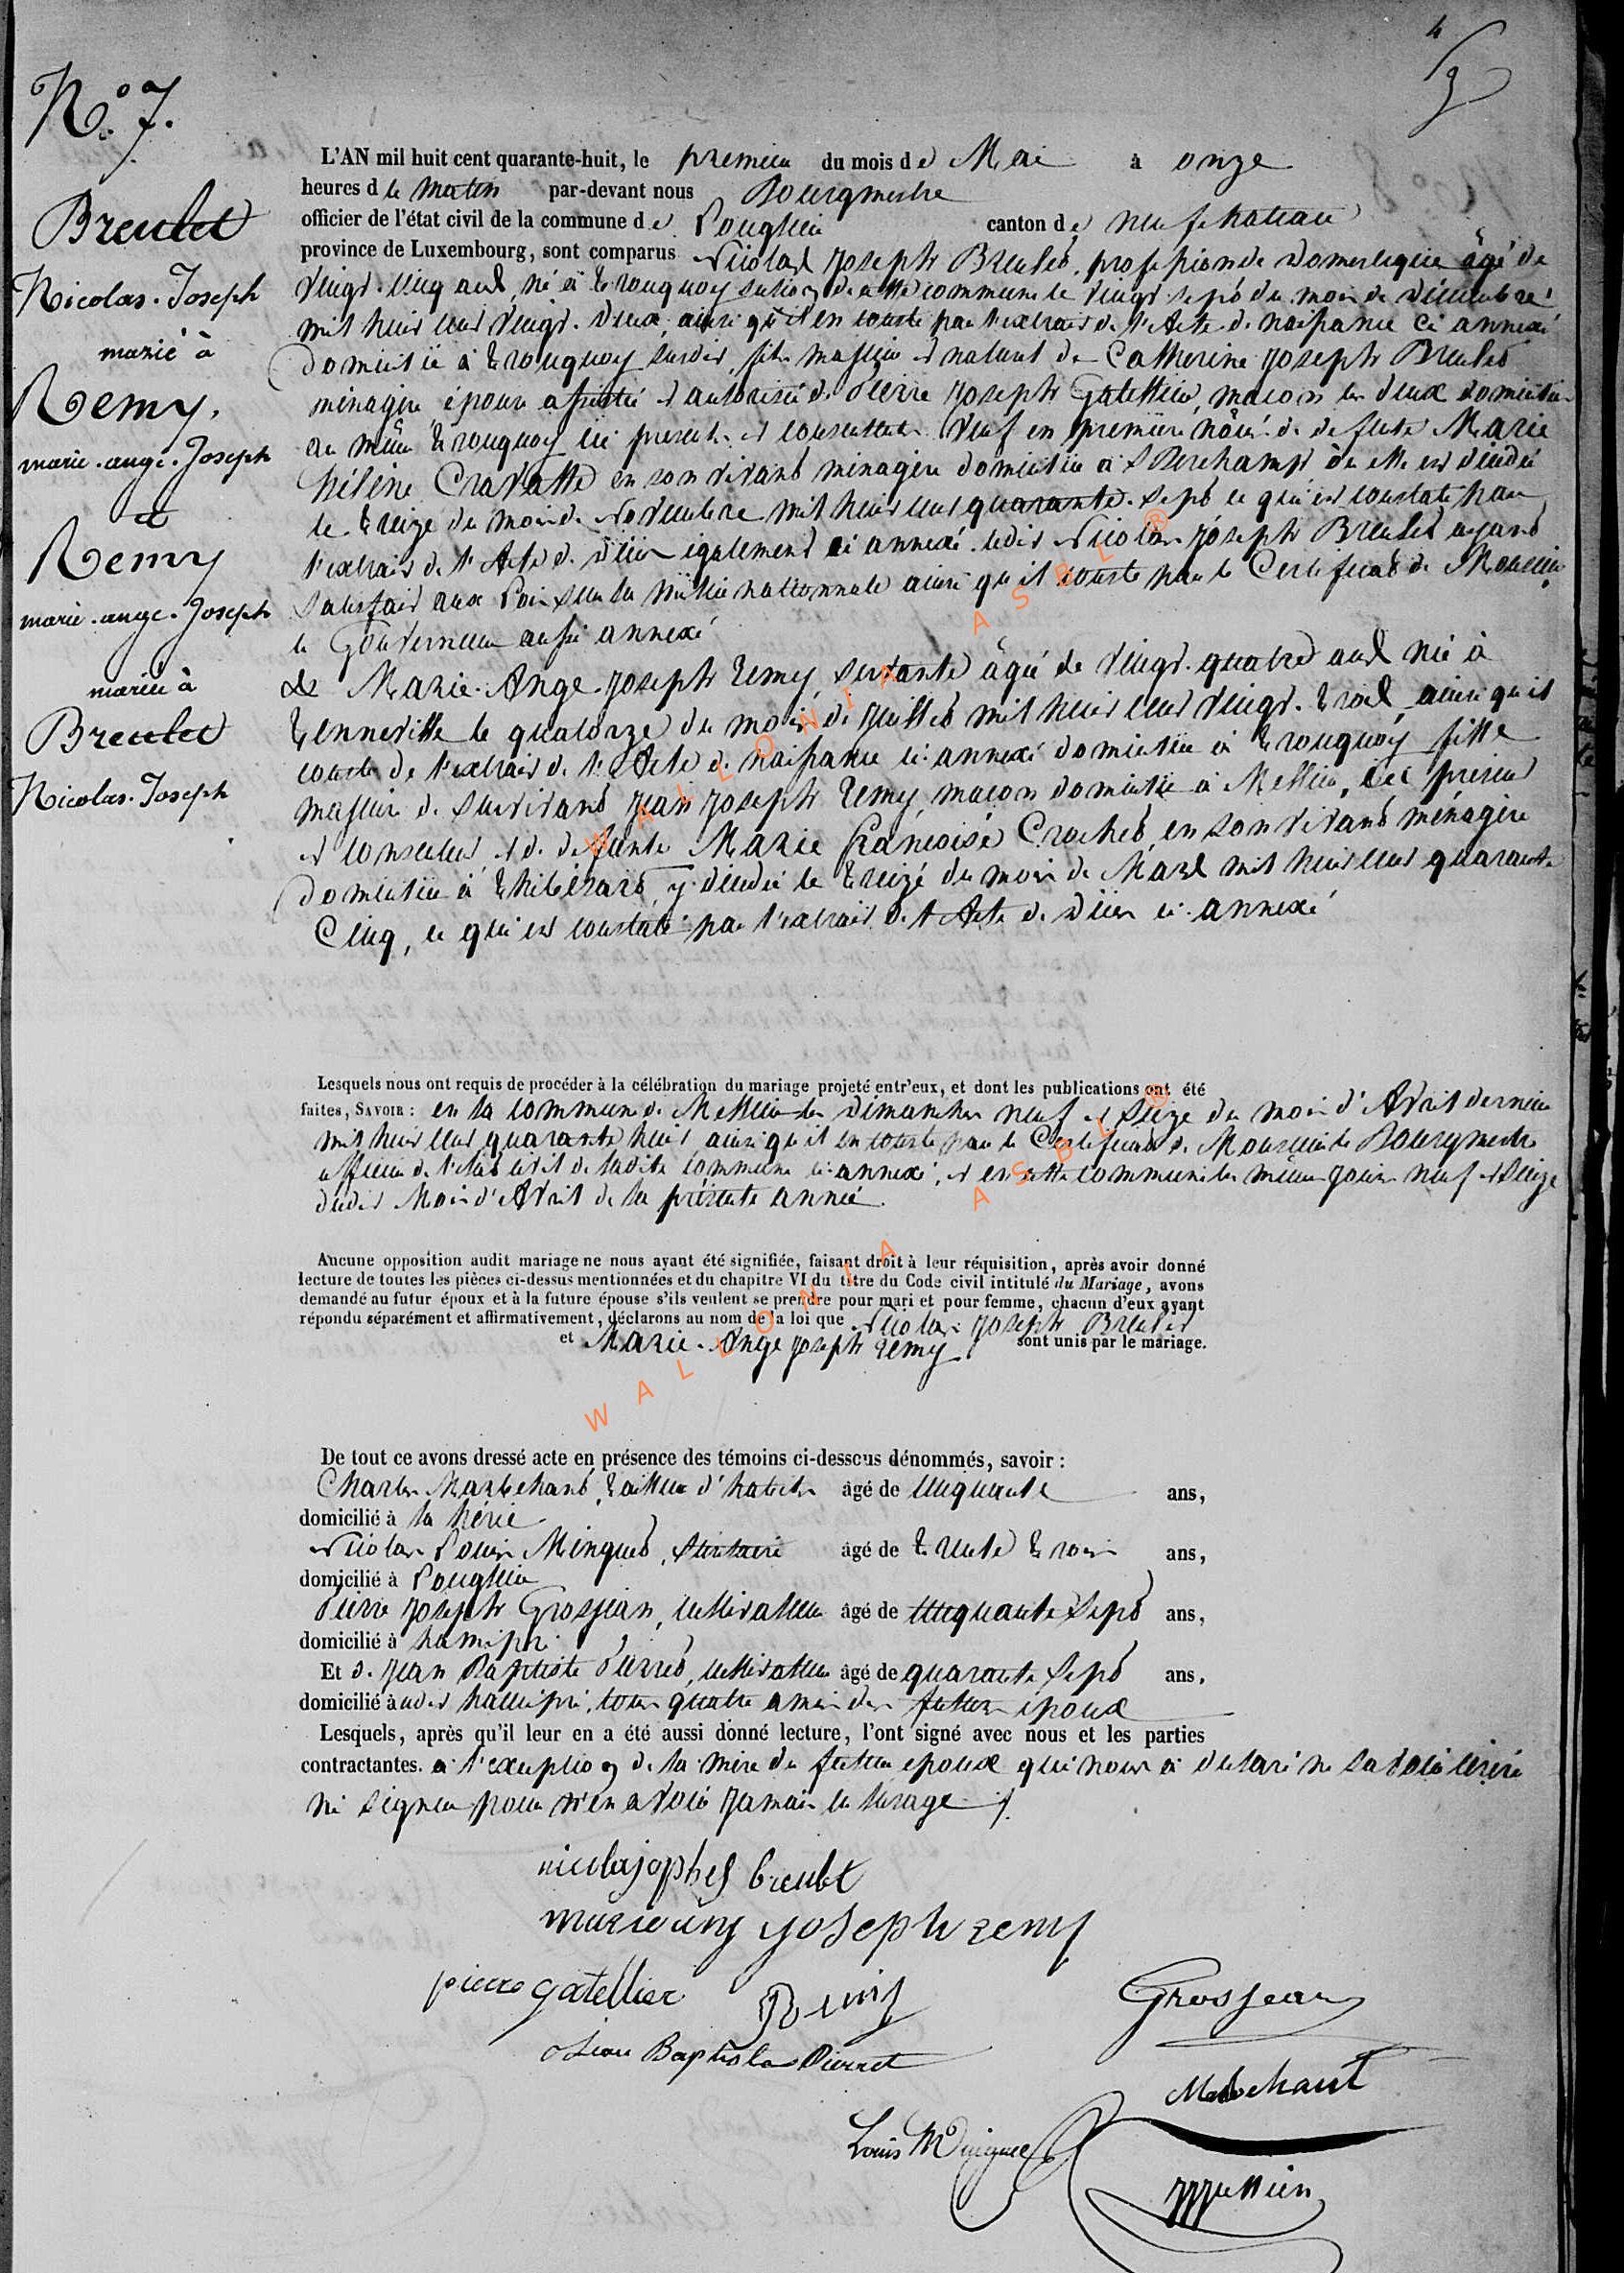 4
3
N.º 7.
Breulet
Nicolas-Joseph
marié à
Remy,
marie-ange-Joseph
et
Remy
marie-ange-Joseph
mariée à
Breulet
Nicolas-Joseph
L'AN mil huit cent quarante-huit, le premier du mois de Mai à onze
heures du matin par-devant nous Bourgmestre
officier de l'état civil de la commune de Longlier canton de neufchateau
province de Luxembourg, sont comparus Nicolas Joseph Breulet, profession de Domestique âgé de
vingt-cinq ans, né à tronquoy section de cette commune le vingt-sept du mois de Décembre
mil huit cent vingt-deux, ainsi qu'il en conste par l'extrait de l'Acte de naissance ci annexé
domicilié à tronquoy susdit, fils majeur et naturel de Catherine Joseph Breulet
ménagère, épouse assistée et autorisée de Pierre Joseph Gatellier, maçon les deux domiciliés
au même tronquoy ici présents et consentants Veuf en première nôce de défunte Marie
héléne Cravatte en son vivant ménagère domiciliée à Berchamps où elle est décédée
le treize du mois de Novembre mil huit cent quarante-sept ce qui est constaté par
l'extrait de l'Acte de décès également ci annexé. ledit Nicolas Joseph Breulet ayant
satisfait aux Lois sur la milice nationale ainsi qu'il conste par le Certificat de Monsieur
le Gouverneur aussi annexé
et Marie-Ange-Joseph remy, servante âgée de vingt-quatre ans née à
tenneville le quatorze du mois de juillet mil huit cent vingt-trois, ainsi qu'il
conste de l'extrait de l'Acte de naissance ci-annexé domiciliée à tronquoy fille
majeure de survivant jean joseph remy maçon domicilié à Mellier, ici présent
et consentant, et de défunte Marie françoise Crochet, en son vivant ménagère
domiciliée à thibésart, y décédée le treize du mois de Mars mil huit cent quarante
Cinq, ce qui est constaté par l'extrait de l'Acte de décès ci-annexé
Lesquels nous ont requis de procéder à la célébration du mariage projeté entr'eux, et dont les publications ont été
faites, SAVOIR : en la commune de Mellier les dimanches neuf et seize du mois d'Avril dernier
mil huit cent quarante huit ainsi qu'il en conste par le Certificat de Monsieur le Bourgmestre
officier de l'état civil de ladite commune ci-annexé, et en cette commune les mêmes jours neuf et seize
dudit Mois d'Avril de la présente année.
Aucune opposition audit mariage ne nous ayant été signifiée, faisant droit à leur réquisition, après avoir donné
lecture de toutes les pièces ci-dessus mentionnées et du chapitre VI du titre du Code civil intitulé du Mariage, avons
demandé au futur époux et à la future épouse s'ils veulent se prendre pour mari et pour femme, chacun d'eux ayant
répondu séparément et affirmativement, déclarons au nom de la loi que Nicolas Joseph Breulet
et Marie-Ange joseph remy sont unis par le mariage.
De tout ce avons dressé acte en présence des témoins ci-dessous dénommés, savoir :
Charles Marbehant, tailleur d'habits âgé de cinquante ans,
domicilié à la hérie
Nicolas Louis Minguet, secretaire âgé de trente trois ans,
domicilié à Longlier
Pierre Joseph Grosjean, cultivateur âgé de cinquante sept ans,
domicilié à hamipré
Et de jean Baptiste Pierret, cultivateur âgé de quarante sept ans,
domicilié à udit hamipré, tous quatre amis des futurs époux
Lesquels, après qu'il leur en a été aussi donné lecture, l'ont signé avec nous et les parties
contractantes. à l'exception de la mère du futur epoux qui nous à déclaré ne savoir écrire
ni signer pour n'en avoir jamais eu l'usage
nicolas jophes breulet
marie ang yoseph remy
pierre gatellier Remy Grosjean
Jean Baptiste Pierret
Marbehant
Louis Minguet
WALLONIA ASBL®
WALLONIA ASBL®